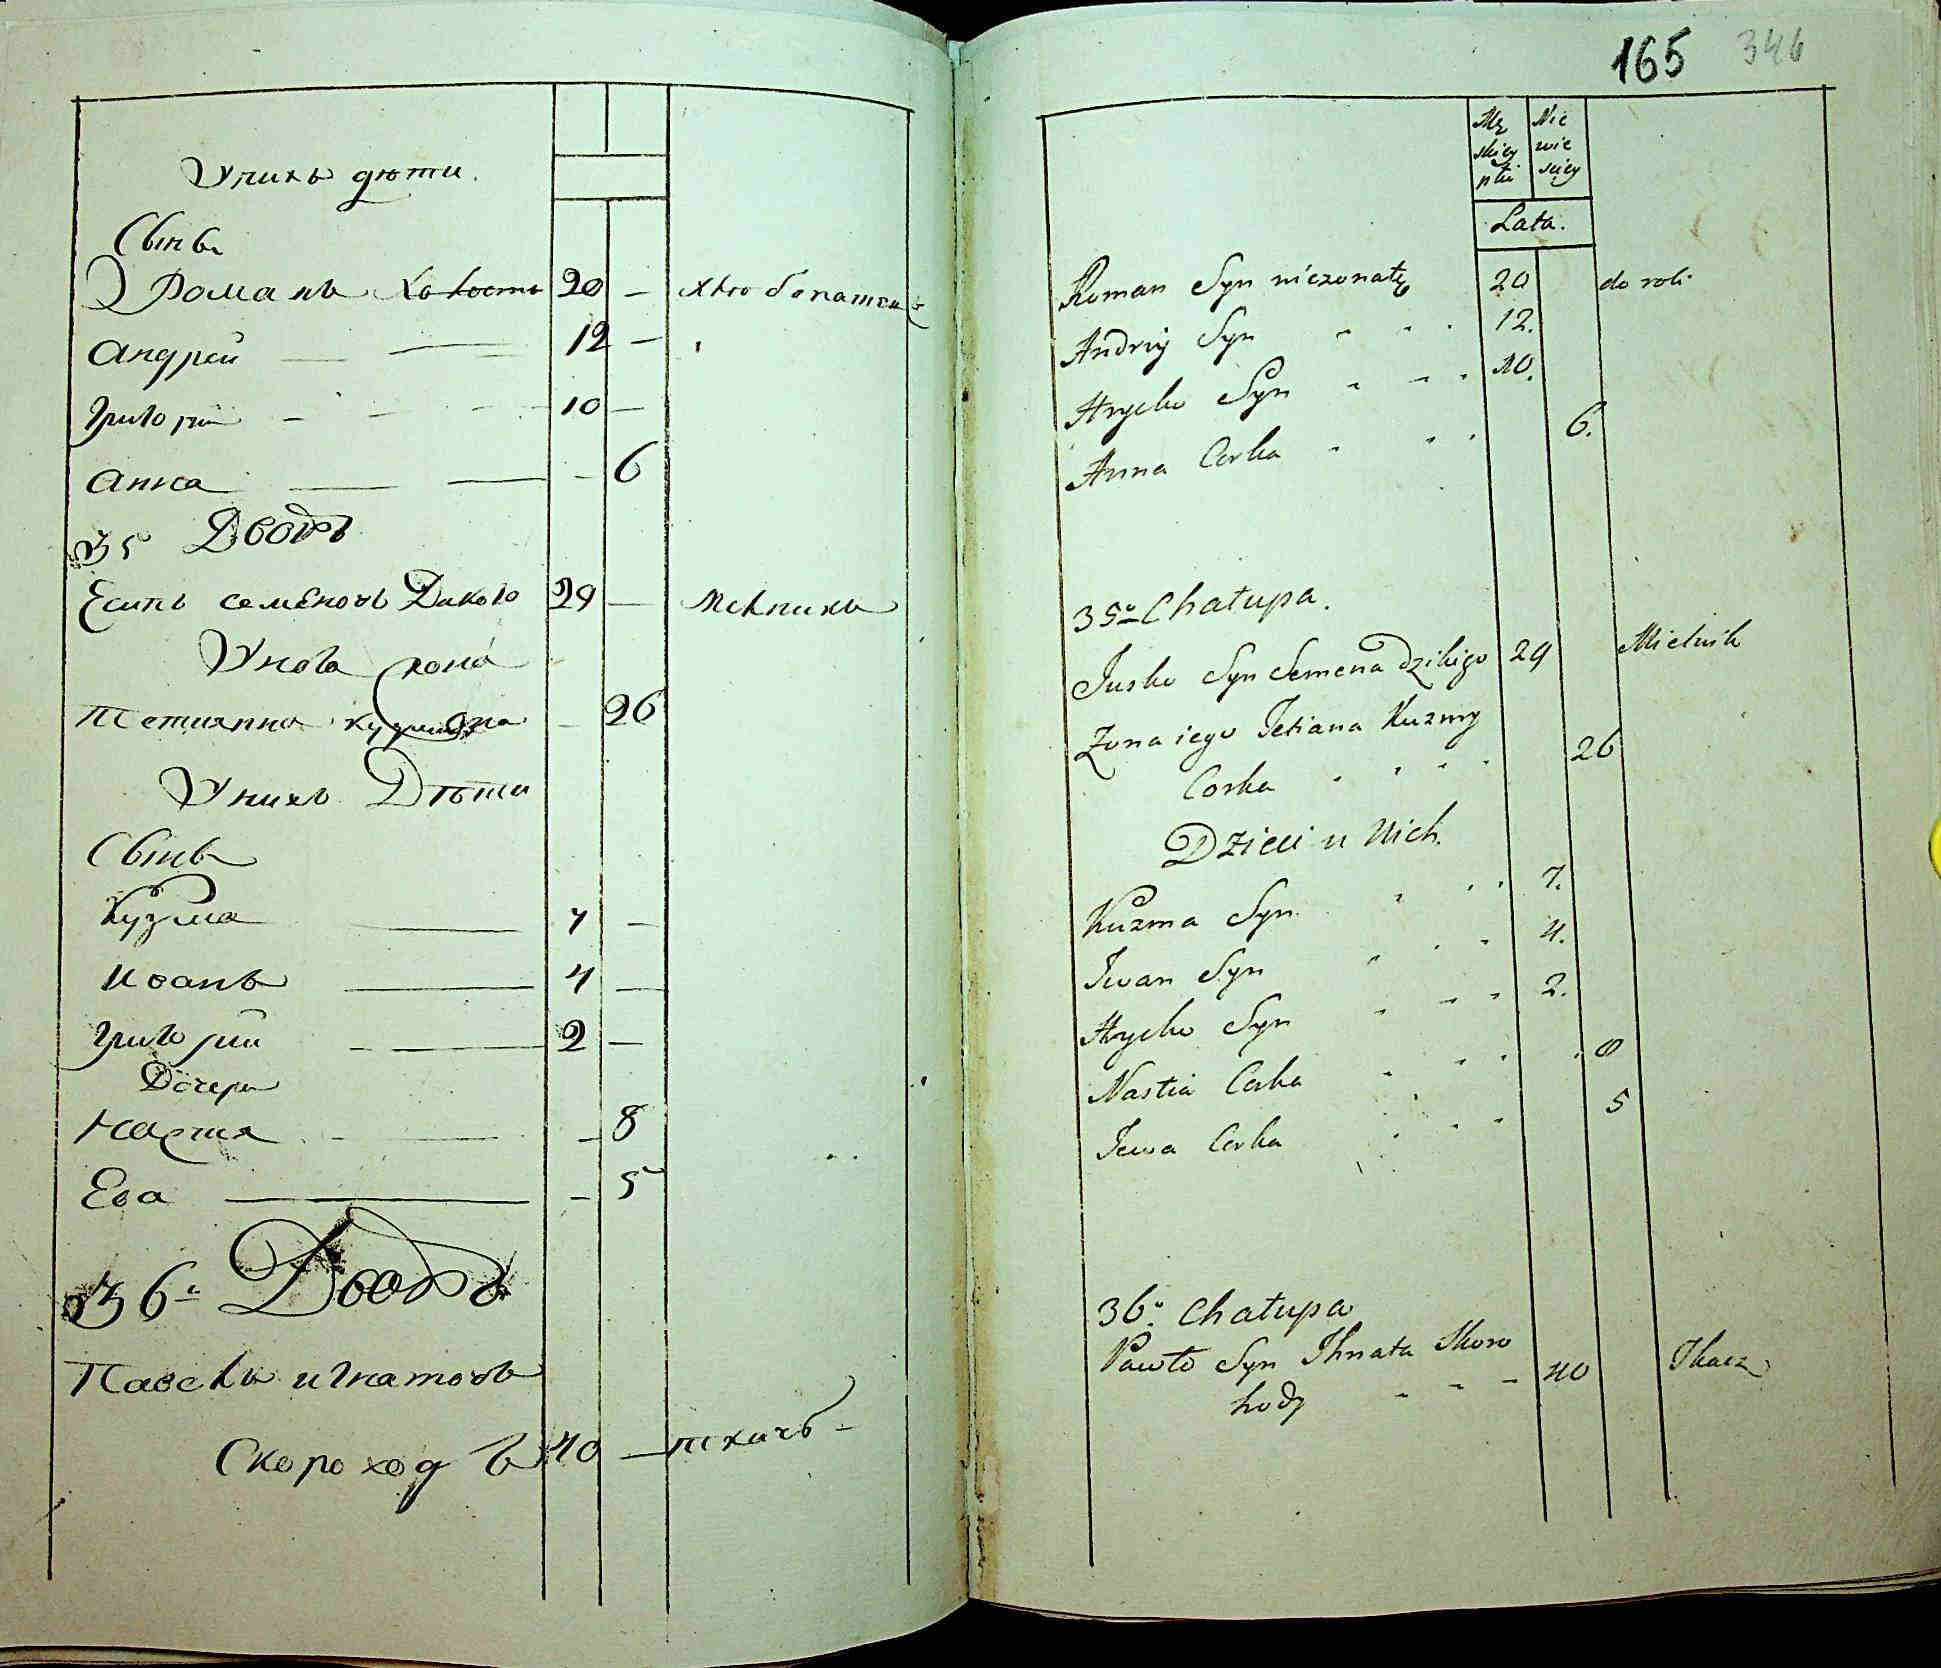 Унихъ дѣти.
Сынъ
Романъ холостъ 20 — хлѣбопашецъ
Андрей — 12 —
Григорій — 10 —
Анна — — 6
35 Дворъ
Есипъ Семеновъ Дикого 29 — мелникъ
Унего жона
Тетиянна — 26
Унихъ Дѣти
Сынъ
Кузма — 7 —
Иванъ — 4 —
Григорій — 2 —
Дочери
Настия — — 8
Ева — — 5
36 Дворъ
Павелъ Игнатовъ
Скороходъ 40 — ткачъ
165 346
Mę Nie
skiey wie
płci sciey
Lata.
Roman Syn niezonaty 20 do roli
Andriy Syn 12.
Hryćko Syn 10.
Anna Corka 6.
35o Chałupa.
Jusko Syn Semena Dzikigo 29 Mielnik
Zona iego Tetiana Kuzmy
Corka 26
Dzieci u Nich.
Kuzma Syn 7.
Iwan Syn 4.
Hryćko Syn 2.
Nastia Corka 8
Jewa Corka 5
36o Chałupa
Pawło Syn Ihnata Skoro
hody 40 Tkacz